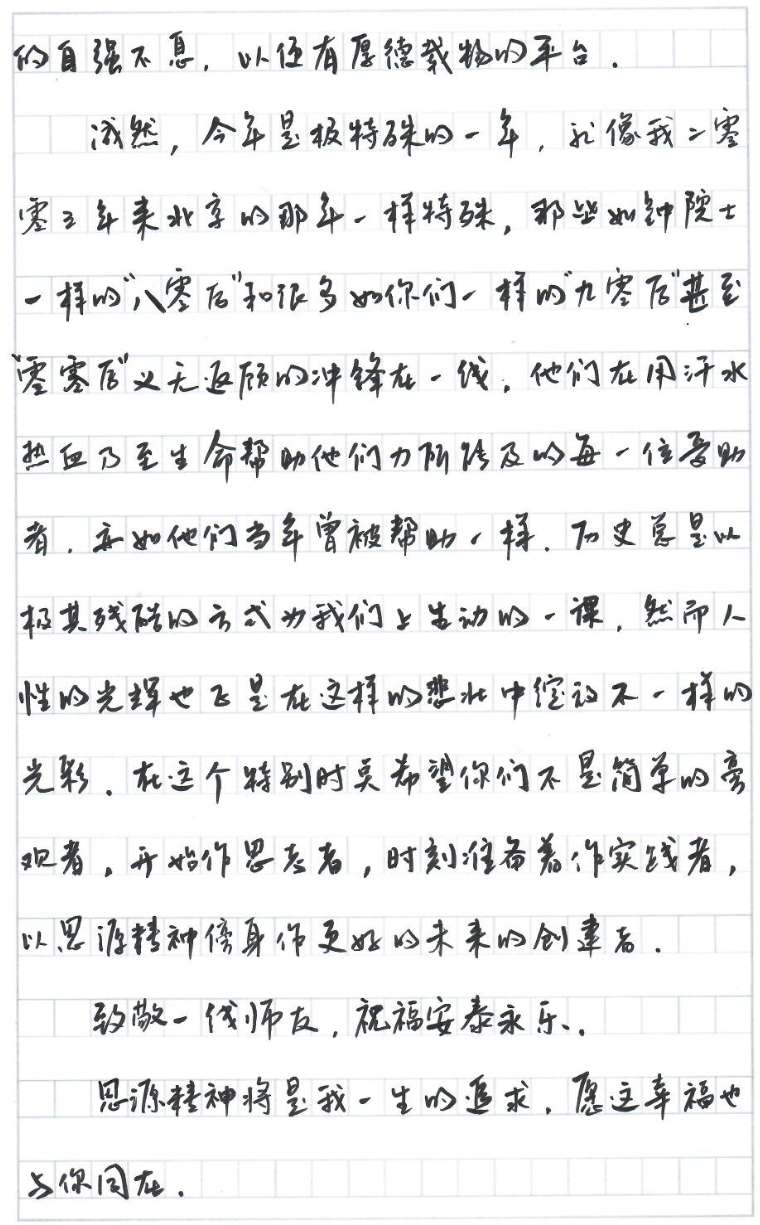 的自强不息，以便有厚德载物的平台．
诚然，今年是极特殊的一年，就像我二零
零三年来北京的那年一样特殊，那些如钟院士
一样的“八零后”和很多如你们一样的“九零后”甚至
“零零后”义无返顾的冲锋在一线，他们在用汗水
热血乃至生命帮助他们力所能及的每一位受助
者，亦如他们当年曾被帮助一样．历史总是以
极其残酷的方式为我们上生动的一课，然而人
性的光辉也正是在这样的悲壮中绽放不一样的
光彩．在这个特别时节希望你们不是简单的旁
观者，开始作思考者，时刻准备着作实践者，
以思源精神傍身作更好的未来的创建者．
致敬一线师友，祝福安泰永乐．
思源精神将是我一生的追求，愿这幸福也
与你同在．